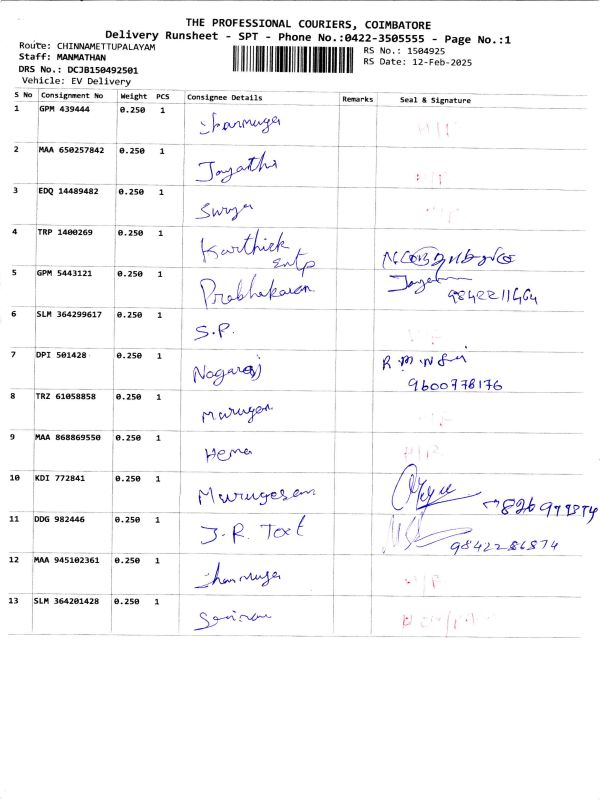 THE PROFESSIONAL COURIERS, COIMBATORE
Delivery Runsheet - SPT - Phone No.:0422-3505555 - Page No.:1
Route: CHINNAMETTUPALAYAM
RS No.: 1504925
Staff: MANMATHAN
RS Date: 12-Feb-2025
DRS No.: DCJB150492501
Vehicle: EV Delivery
S No Consignment No Weight PCS Consignee Details Remarks Seal & Signature
1 GPM 439444 0.250 1 Shanmuga
2 MAA 650257842 0.250 1 Jayanthi
3 EDQ 14489482 0.250 1 Surya
4 TRP 1400269 0.250 1 Karthick
Entp
5 GPM 5443121 0.250 1 Prabhakaran
9842211464
6 SLM 364299617 0.250 1 S.P.
7 DPI 501428 0.250 1 Nagaraj
9600778176
8 TRZ 61058858 0.250 1 Murugan
9 MAA 868869550 0.250 1 Hema
10 KDI 772841 0.250 1 Murugesan
11 DDG 982446 0.250 1 J.R. Text 9842286874
12 MAA 945102361 0.250 1 Shanmuga
13 SLM 364201428 0.250 1